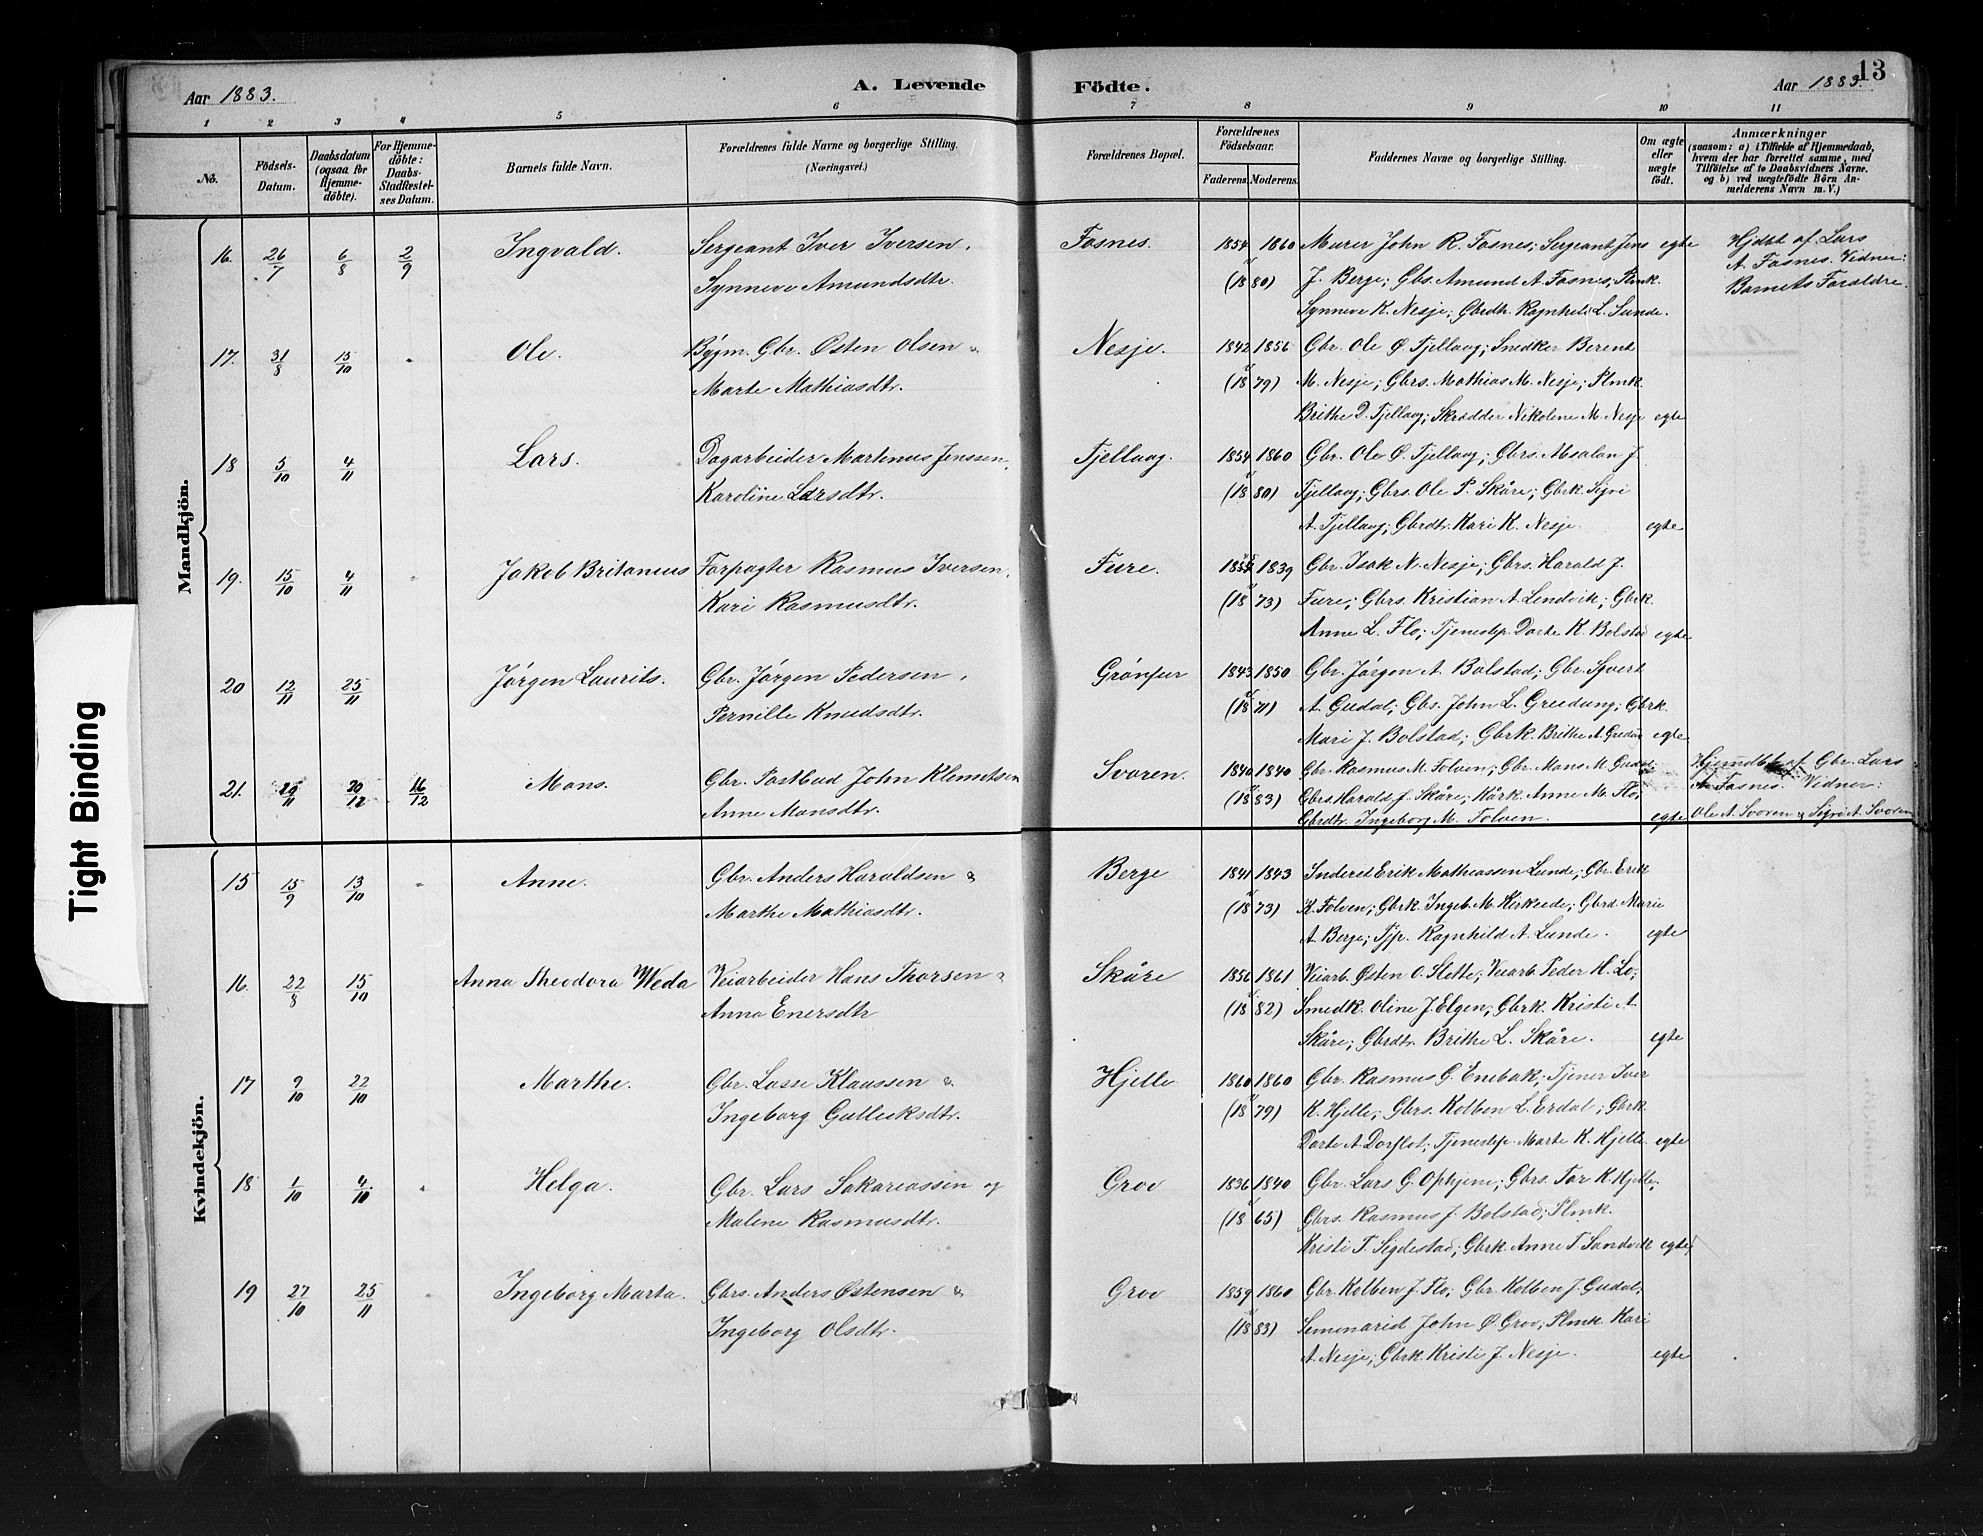 Aar 1883.
A. Levende Födte.
Aar 1883.
13
1 2 3 4 5 6 7 8 9 10 11
No.
Födsels-Datum.
Daabsdatum (ogsaa for Hjemmedöbte).
For Hjemmedöbte: Daabs-Stadfæstelses Datum.
Barnets fulde Navn.
Forældrenes fulde Navne og borgerlige Stilling. (Næringsvei.)
Forældrenes Bopæl.
Forældrenes Födselsaar.
Faderens. Moderens.
Faddernes Navne og borgerlige Stilling.
Om ægte eller uægte födt.
Anmærkninger
(saasom: a) i Tilfælde af Hjemmedaab, hvem der har forrettet samme, med Tilföielse af to Daabsvidners Navne, og b) ved uægtefödte Börn Anmelderens Navn m. V.)
Mandkjön.
16. 26/7 6/8 2/9 Ingvald. Sergeant Iver Iversen, Fosnes. 1854 1860 Murer John R. Fosnes; Sergeant Jens egte Hjdbt af Lars
Synneve Amundsdtr. (18 80) J. Berge; Gbs. Amund A. Fosnes; Plmk. A. Fosnes. Vidner:
Synneve K. Nesje; Gbrdtr. Ragnhild L. Sunde. Barnets Forældre.
17. 31/8 15/10 " Ole. Bygm. Gbr. Østen Olsen & Nesje. 1842 1856 Gbr. Ole Ø. Fjellaug; Snedker Berent
Marte Mathiasdtr. (18 79) M. Nesje; Gbrs. Mathias M. Nesje; Plmk.
Brithe D. Fjellaug; Skrædder Nikoline M. Nesje egte
18 5/10 4/11 Lars. Dagarbeider Martinus Jenssen, Fjellaug. 1854 1860 Gbr. Ole Ø. Fjellaug; Gbrs. Absalon J.
Karoline Larsdtr. (18 80) Fjellaug; Gbrs. Ole P. Skåre; Gbrk. Sigri
A. Fjellaug; Gbrdtr. Kari K. Nesje. egte
19. 15/10 4/11 " Jakob Britanius Forpagter Rasmus Iversen, Fure. 1839 Gbr. Isak N. Nesje; Gbrs. Harald J.
Kari Rasmusdtr. (18 73) Fure; Gbrs. Kristian A. Lendvik; Gbrk.
Anne L. Flo; Tjenestep. Dorte K. Bolstad egte
20 12/11 25/11 Jørgen Laurits. Gbr. Jørgen Pedersen, Grønfur 1843 1850 Gbr. Jørgen A. Bolstad; Gbr. Sjvert
Pernille Knudsdtr. (18 71) A. Gudal; Gbs. John L. Greidung; Gbrk.
Mari J. Bolstad; Gbrk. Brithe A. egte
21. 29/11 20/12 16/12 Mons. Gbr. Postbud John Klemetsen Svoren. 1840 1840 Gbr. Rasmus M. Folven; Gbr. Mons M. Gudal; Hjemdbt af Gbr. Lars
Anne Monsdtr. (18 83) Gbrs. Harald J. Skåre; Kårk. Anne M. Flo, A. Fosnes. Vidner:
Gbrdtr. Ingeborg M. Folven. egte Ole A. Svoren & Sigri A. Svoren
Kvindekjön.
15 15/9 13/10 " Anne. Gbr. Anders Haraldsen & Berge 1841 1843 Inderst Erik Mathiassen Lunde; Gbr. Erik
Marthe Mathiasdtr. (18 73) K. Folven; Gbrk. Ingeb. M. Kirkeide; Gbrd. Marie
A. Berge; Tjp. Ragnhild A. Lunde. egte
16. 22/8 15/10 Anna Theodora Weda Veiarbeider Hans Thorsen & Skåre 1856 1861 Veiarb. Østen O. Slette; Veiarb. Peder H. Lo;
Anna Enersdtr (18 82) Smedk. Oline J. Elgen; Gbrk. Kristi A.
Skåre; Gbrdtr. Brithe L. Skåre. egte
17 9/10 22/10 Marthe. Gbr. Lasse Klaussen & Hjelle 1860 1860 Gbr. Rasmus G. Enebak; Tjener Iver
Ingeborg Gulleiksdtr. (18 79) K. Hjelle; Gbrs. Kolben L. Erdal; Gbrk.
Dorte A. Dorflot; Tjenestp. Marte K. Hjelle egte
18 1/10 4/10 " Helga. Gbr. Lars Sakariassen og Grov 1836 1840 Gbr. Lars G. Ophjem; Gbrs. Tor K. Hjelle;
Malene Rasmusdtr. (18 65) Gbrs. Rasmus J. Bolstad; Plmk.
Kristi T. Segdestad; Gbrk. Anne T. Sandvik egte
19 27/10 25/11 " Ingeborg Marta. Gbrs. Anders Østensen & Grov 1859 1860 Gbr. Kolben J. Flo; Gbr. Kolben J. Gudal;
Ingeborg Olsdtr. (18 83) Semenarid John Ø. Grov; Plmk. Kari
A. Nesje; Gbrk. Kristi J. Nesje. egte
Tight Binding